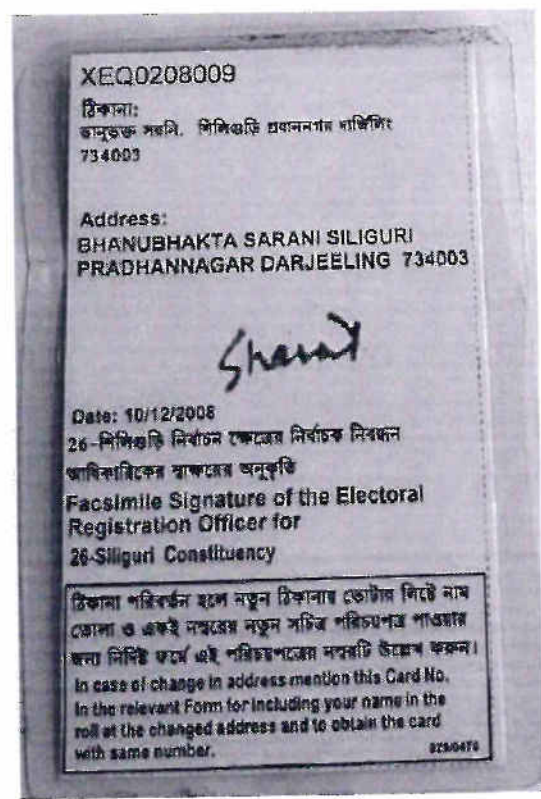 XEQ0208009
ঠিকানা:
ভানুভক্ত সরনি, শিলিগুড়ি প্রধাননগর দার্জিলিং
734003
Address:
BHANUBHAKTA SARANI SILIGURI
PRADHANNAGAR DARJEELING 734003
Sharad
Date: 10/12/2008
26-শিলিগুড়ি নির্বাচন ক্ষেত্রের নির্বাচক নিবন্ধন
আধিকারিকের স্বাক্ষরের অনুকৃতি
Facsimile Signature of the Electoral
Registration Officer for
26-Siliguri Constituency
ঠিকানা পরিবর্তন হলে নতুন ঠিকানায় ভোটার লিষ্টে নাম
তোলা ও একই নম্বরের নতুন সচিত্র পরিচয়পত্র পাওয়ার
জন্য নির্দিষ্ট ফর্মে এই পরিচয়পত্রের নম্বরটি উল্লেখ করুন।
In case of change in address mention this Card No.
In the relevant Form for including your name in the
roll at the changed address and to obtain the card
with same number.
929/0470